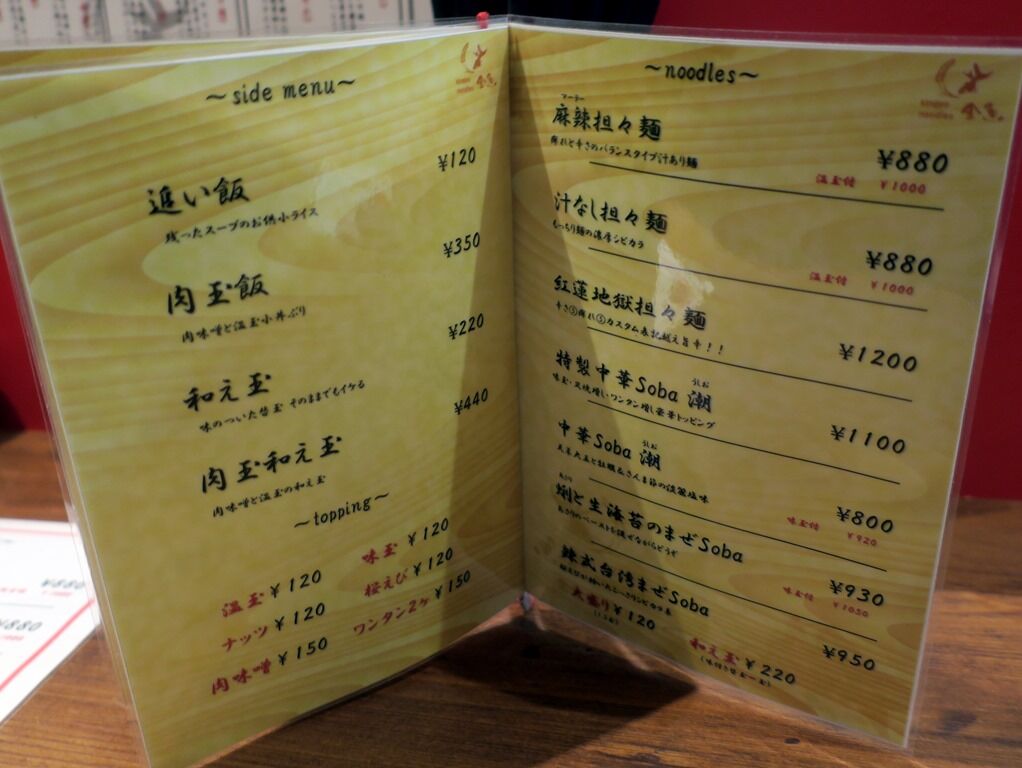 ～side menu～
追い飯 ¥120
残ったスープのお供小ライス
肉玉飯 ¥350
肉味噌と温玉小丼ぶり
和え玉 ¥220
味のついた替玉 そのままでもイケる
肉玉和え玉 ¥440
肉味噌と温玉の和え玉
～topping～
味玉 ¥120
温玉 ¥120
桜えび ¥120
ナッツ ¥120
ワンタン2ヶ ¥150
肉味噌 ¥150
～noodles～
マーラー
麻辣担々麺 ¥880
痺れと辛さのバランスタイプ汁あり麺
温玉付 ¥1000
汁なし担々麺 ¥880
もっちり麺の濃厚シビカラ
温玉付 ¥1000
紅蓮地獄担々麺 ¥1200
辛さ⑤痺れ⑤カスタム表記越え旨辛!!
うしお
特製中華Soba 潮 ¥1100
味玉・叉焼増し・ワンタン増し豪華トッピング
うしお
中華Soba 潮 ¥800
味玉付 ¥920
あさり
蜊と生海苔のまぜSoba ¥930
あさりのペーストを混ぜながらどうぞ
味玉付 ¥1050
台湾まぜSoba ¥950
大盛り ¥120
和え玉 ¥220